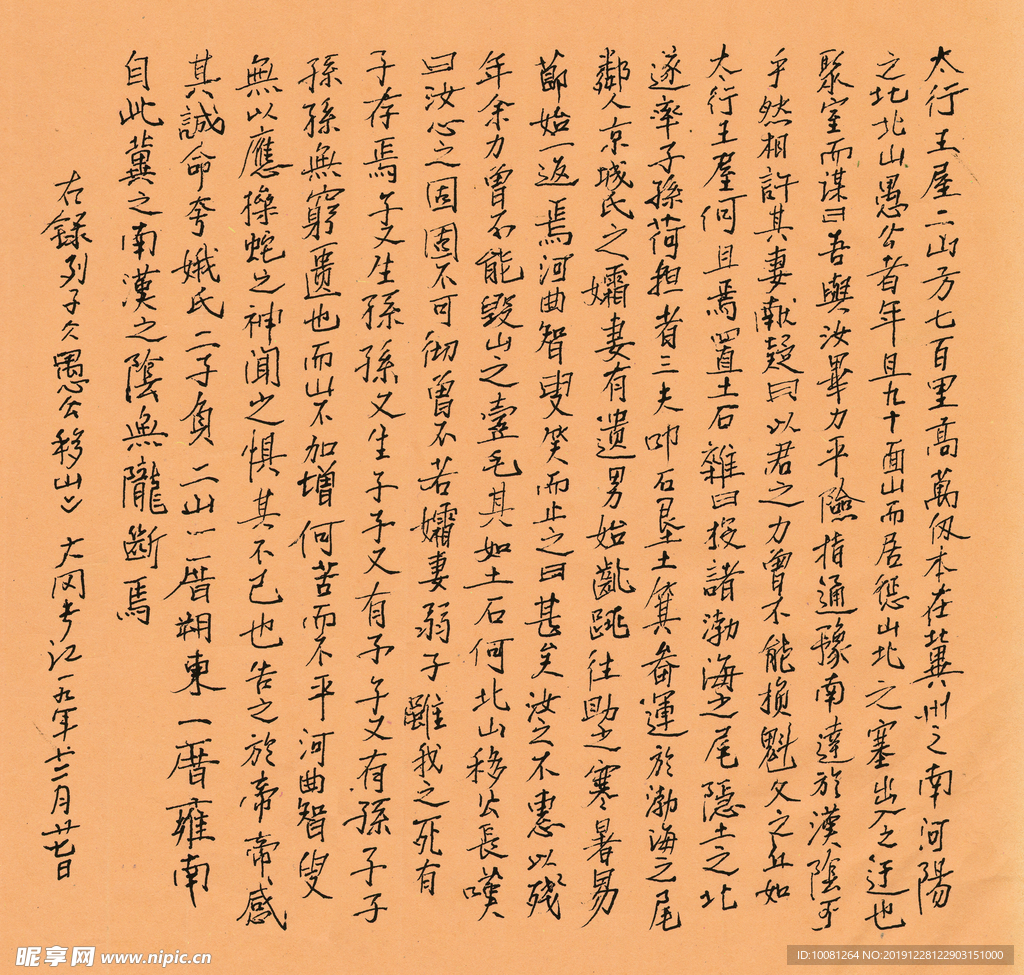 太行王屋二山方七百里高萬仞本在冀州之南河陽
之北北山愚公者年且九十面山而居懲山北之塞出入之迂也
聚室而謀曰吾與汝畢力平險指通豫南達於漢陰可
乎然相許其妻獻疑曰以君之力曾不能損魁父之丘如
太行王屋何且焉置土石雜曰投諸渤海之尾隱土之北
遂率子孫荷担者三夫叩石垦土箕畚運於渤海之尾
鄰人京城氏之孀妻有遺男始齓跳往助之寒暑易
節始一返焉河曲智叟笑而止之曰甚矣汝之不惠以殘
年余力曾不能毀山之壹毛其如土石何北山移公長嘆
曰汝心之固固不可彻曾不若孀妻弱子雖我之死有
子存焉子又生孫孫又生子子又有子子又有孫子子
孫孫無窮匮也而山不加增何苦而不平河曲智叟
無以應操蛇之神闻之惧其不已也告之於帝帝感
其誠命夸娥氏二子負二山一厝朔東一厝雍南
自此冀之南漢之陰無隴斷焉
右錄列子久愚公移山 大冈 江一九年十二月廿七日
昵享网 www.nipic.cn
ID:10081264 NO:20191228122903151000